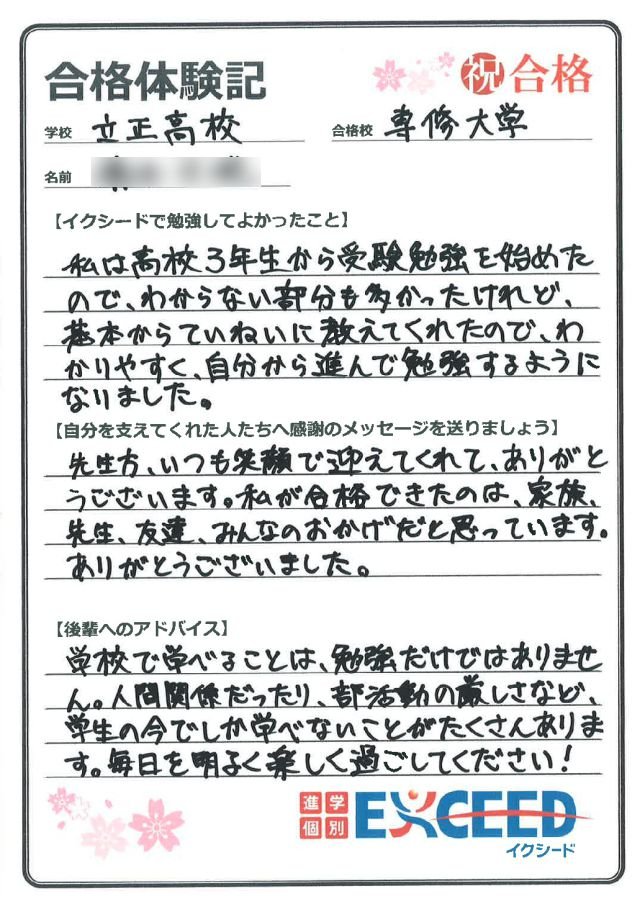 合格体験記
祝 合格
学校 立正高校
合格校 専修大学
名前
【イクシードで勉強してよかったこと】
私は高校3年生から受験勉強を始めた
ので、わからない部分も多かったけれど、
基本からていねいに教えてくれたので、わ
かりやすく、自分から進んで勉強するように
なりました。
【自分を支えてくれた人たちへ感謝のメッセージを送りましょう】
先生方、いつも笑顔で迎えてくれて、ありがと
うございます。私が合格できたのは、家族、
先生、友達、みんなのおかげだと思っています。
ありがとうございました。
【後輩へのアドバイス】
学校で学べることは、勉強だけではありませ
ん。人間関係だったり、部活動の厳しさなど、
学生の今でしか学べないことがたくさんありま
す。毎日を明るく楽しく過ごしてください!
進学
個別
EXCEED
イクシード